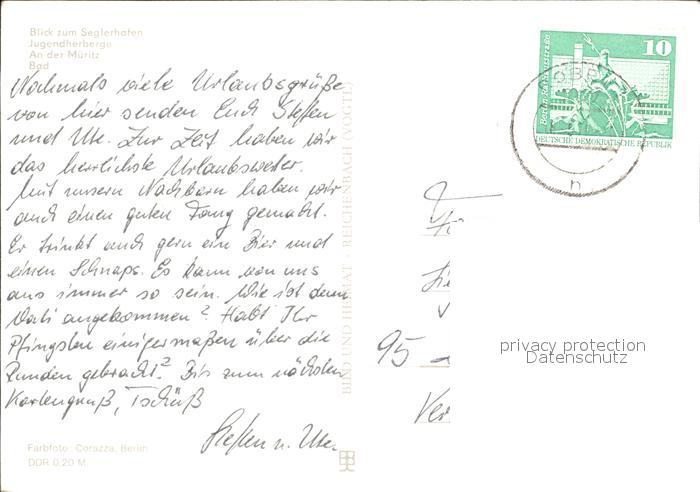 Blick zum Seglerhafen
Jugendherberge
An der Müritz
Bad
Nochmals viele Urlaubsgrüße
von hier senden Euch Steffen
und Ute. Zur Zeit haben wir
das herrlichste Urlaubswetter.
Mit unsern Nachbarn haben wir
auch einen guten Fang gemacht.
Er trinkt auch gern ein Bier und
einen Schnaps. Es kann von uns
aus immer so sein. Wie ist denn
Vati angekommen? Habt Ihr
Pfingsten einigermaßen über die
Runden gebracht? Bis zum nächsten
Kartengruß, Tschüß
Steffen u. Ute.
Farbfoto: Corazza, Berlin
DDR 0,20 M
BILD UND HEIMAT · REICHENBACH (VOGTL)
10
Berlin
DEUTSCHE DEMOKRATISCHE REPUBLIK
n
95
Ver
privacy protection
Datenschutz